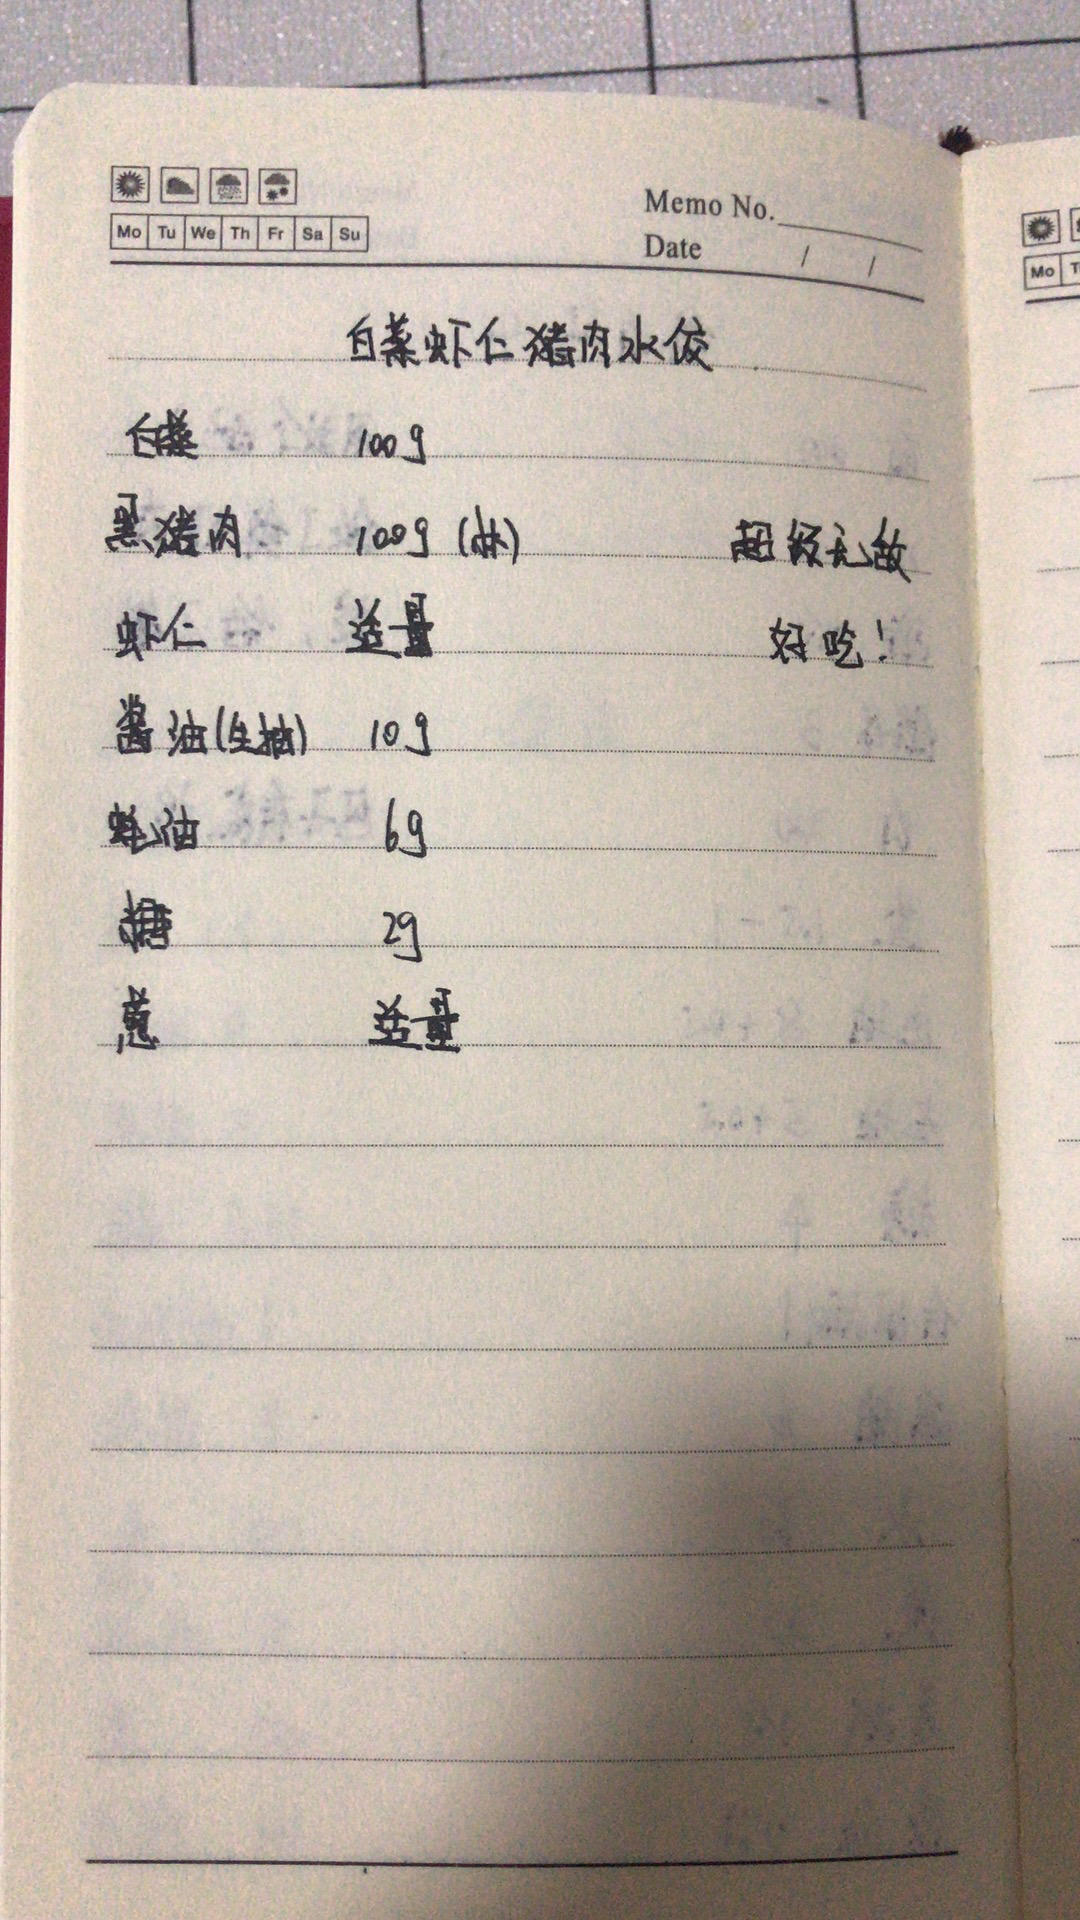 Mo Tu We Th Fr Sa Su
Memo No.
Date / /
白菜虾仁猪肉水饺
白菜 100g
黑猪肉 100g 超级无敌
虾仁 适量 好吃!
酱油(生抽) 10g
蚝油 6g
糖 2g
葱 适量
Mo